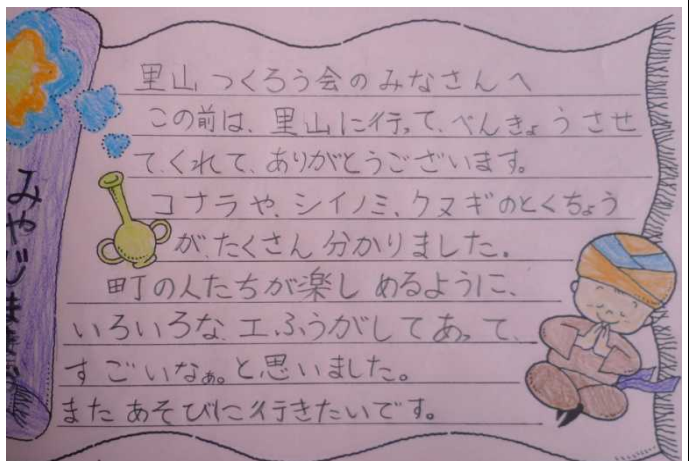 里山つくろう会のみなさんへ
この前は、里山に行って、べんきょうさせ
て、くれて、ありがとうございます。
コナラや、シイノミ、クヌギのとくちょう
が、たくさん分かりました。
町の人たちが楽しめるように、
いろいろな、工ふうがしてあって、
すごいなぁ。と思いました。
またあそびに行きたいです。
みやじま